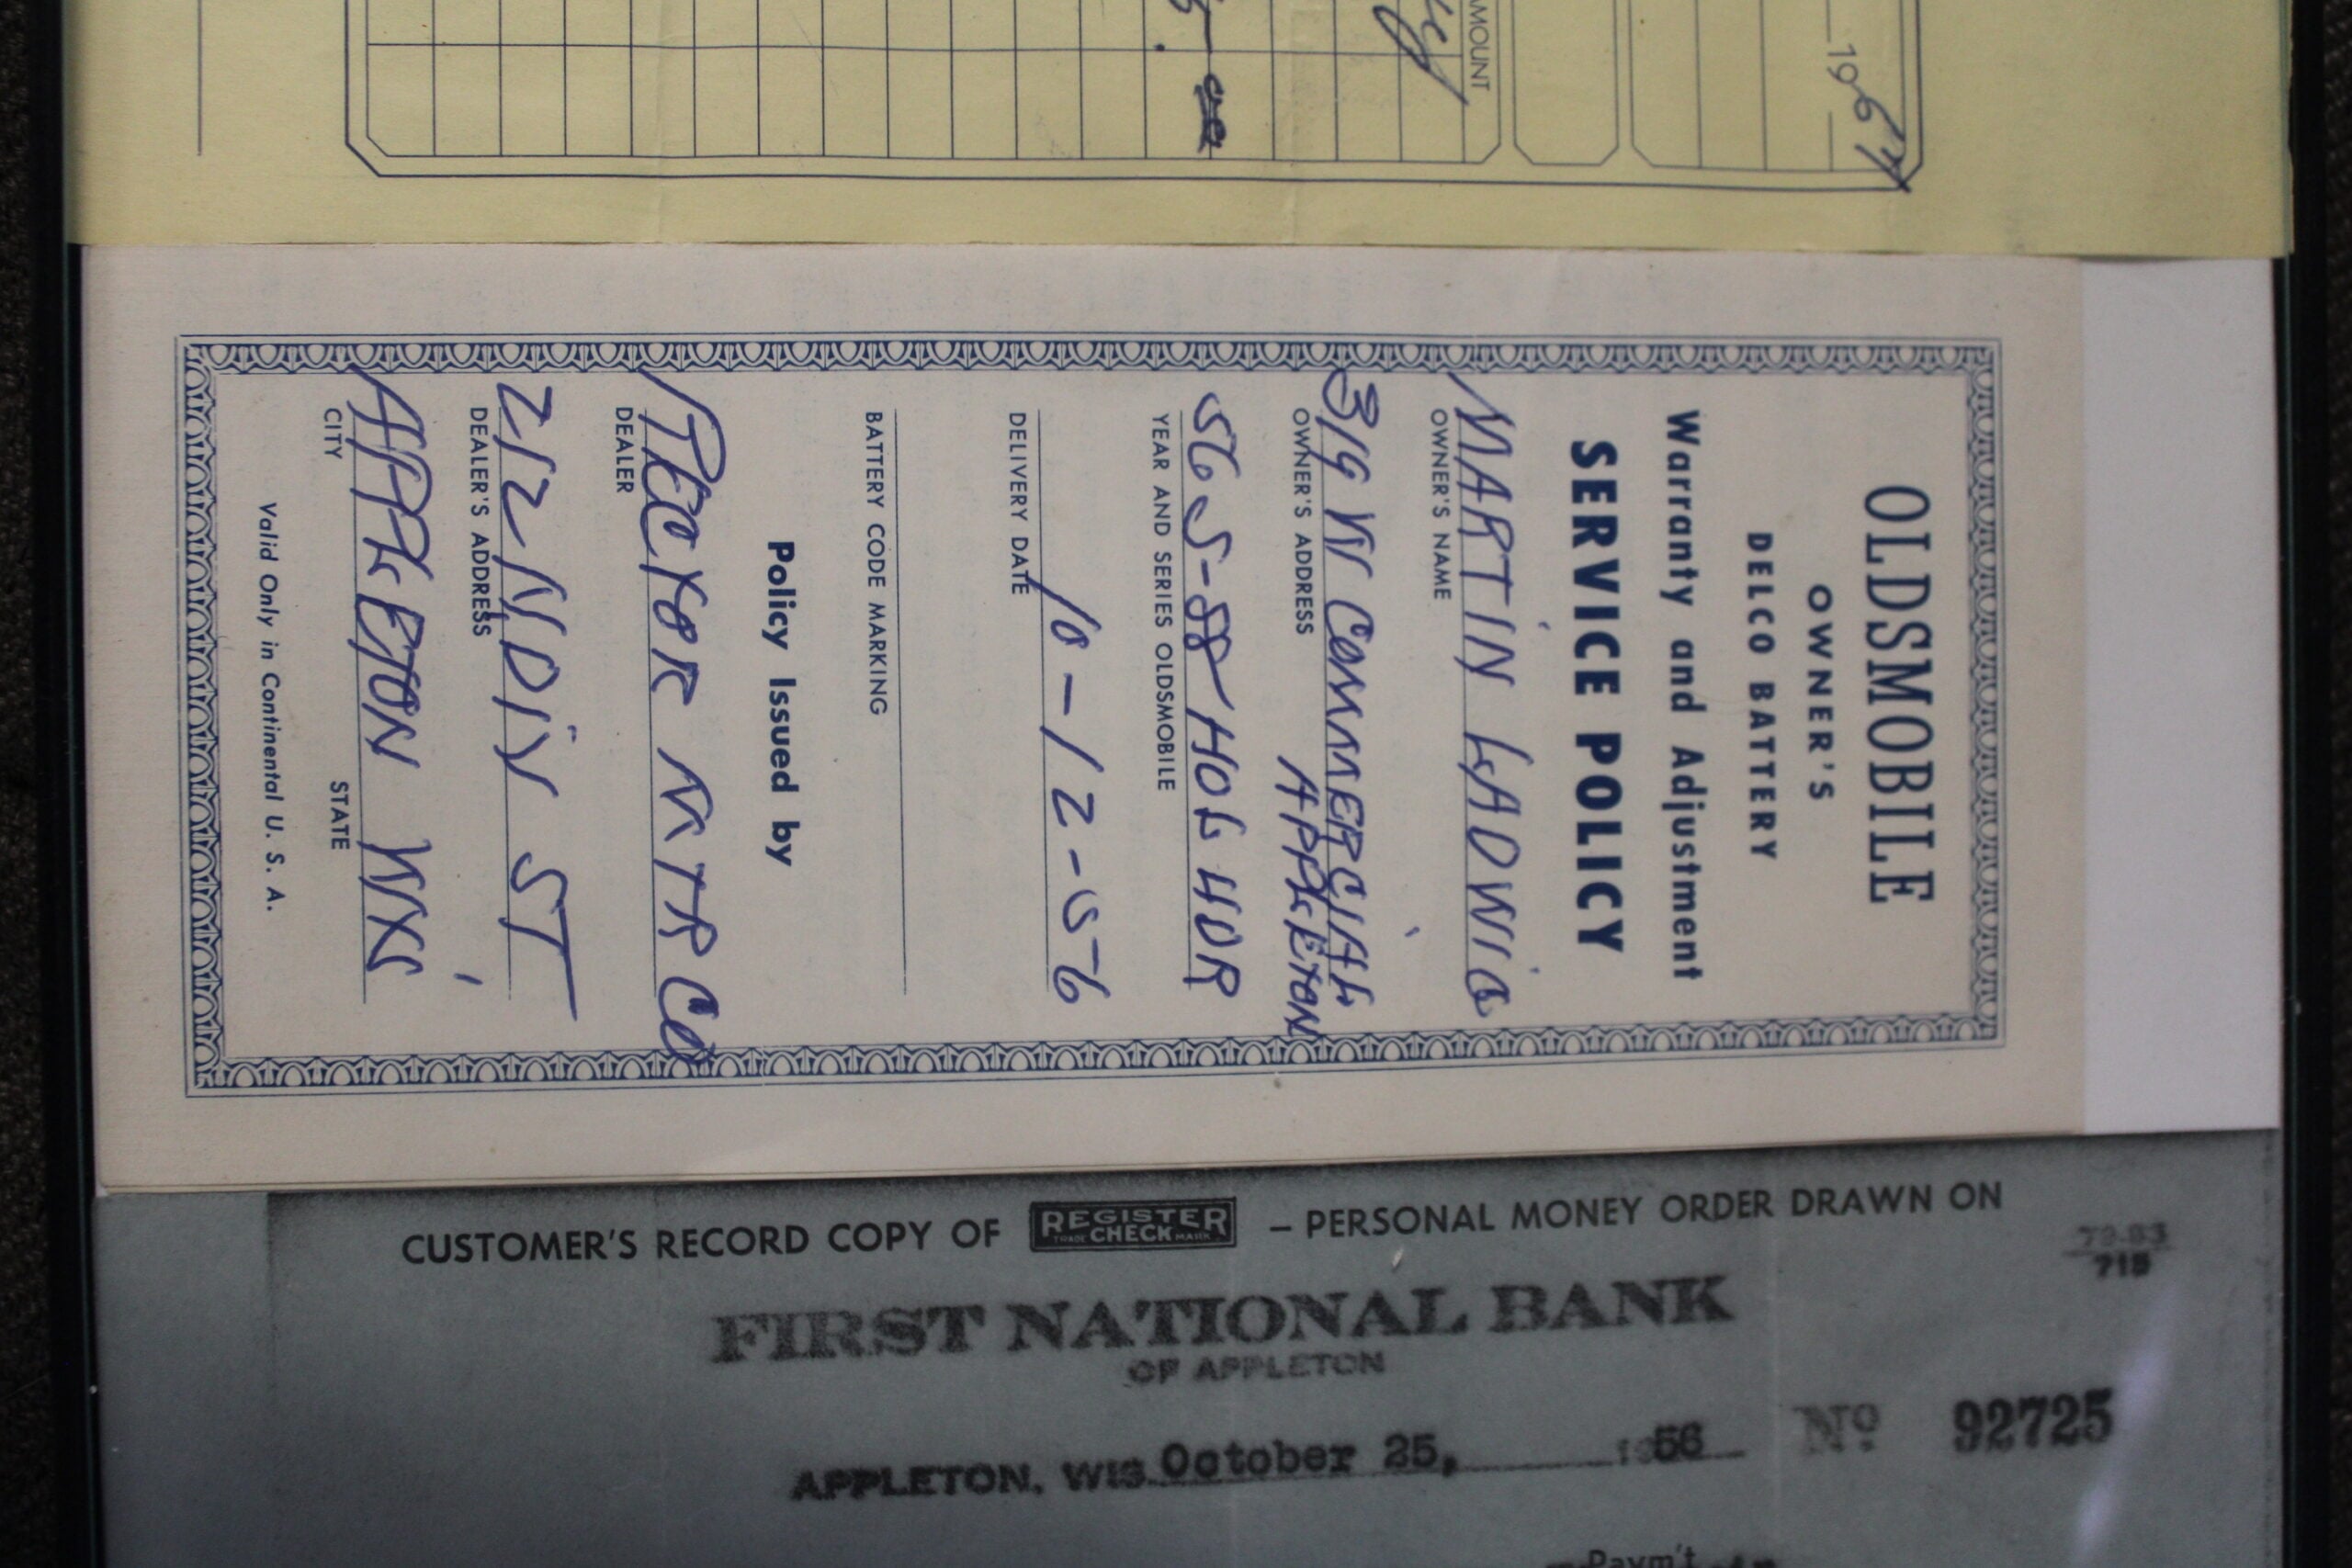 AMOUNT
1964
OLDSMOBILE
OWNER'S
DELCO BATTERY
Warranty and Adjustment
SERVICE POLICY
MARTIN LADWIG
OWNER'S NAME
319 W COMMERCIAL
OWNER'S ADDRESS APPLETON
56 S-88 HOL HDR
YEAR AND SERIES OLDSMOBILE
10-12-56
DELIVERY DATE
BATTERY CODE MARKING
Policy Issued by
RECTOR MTR CO
DEALER
212 N DIV ST
DEALER'S ADDRESS
APPLETON WIS
CITY STATE
Valid Only in Continental U. S. A.
CUSTOMER'S RECORD COPY OF REGISTER CHECK – PERSONAL MONEY ORDER DRAWN ON
TRADE MARK
FIRST NATIONAL BANK
OF APPLETON
APPLETON, WIS. October 25, 1956 No 92725
Paym't